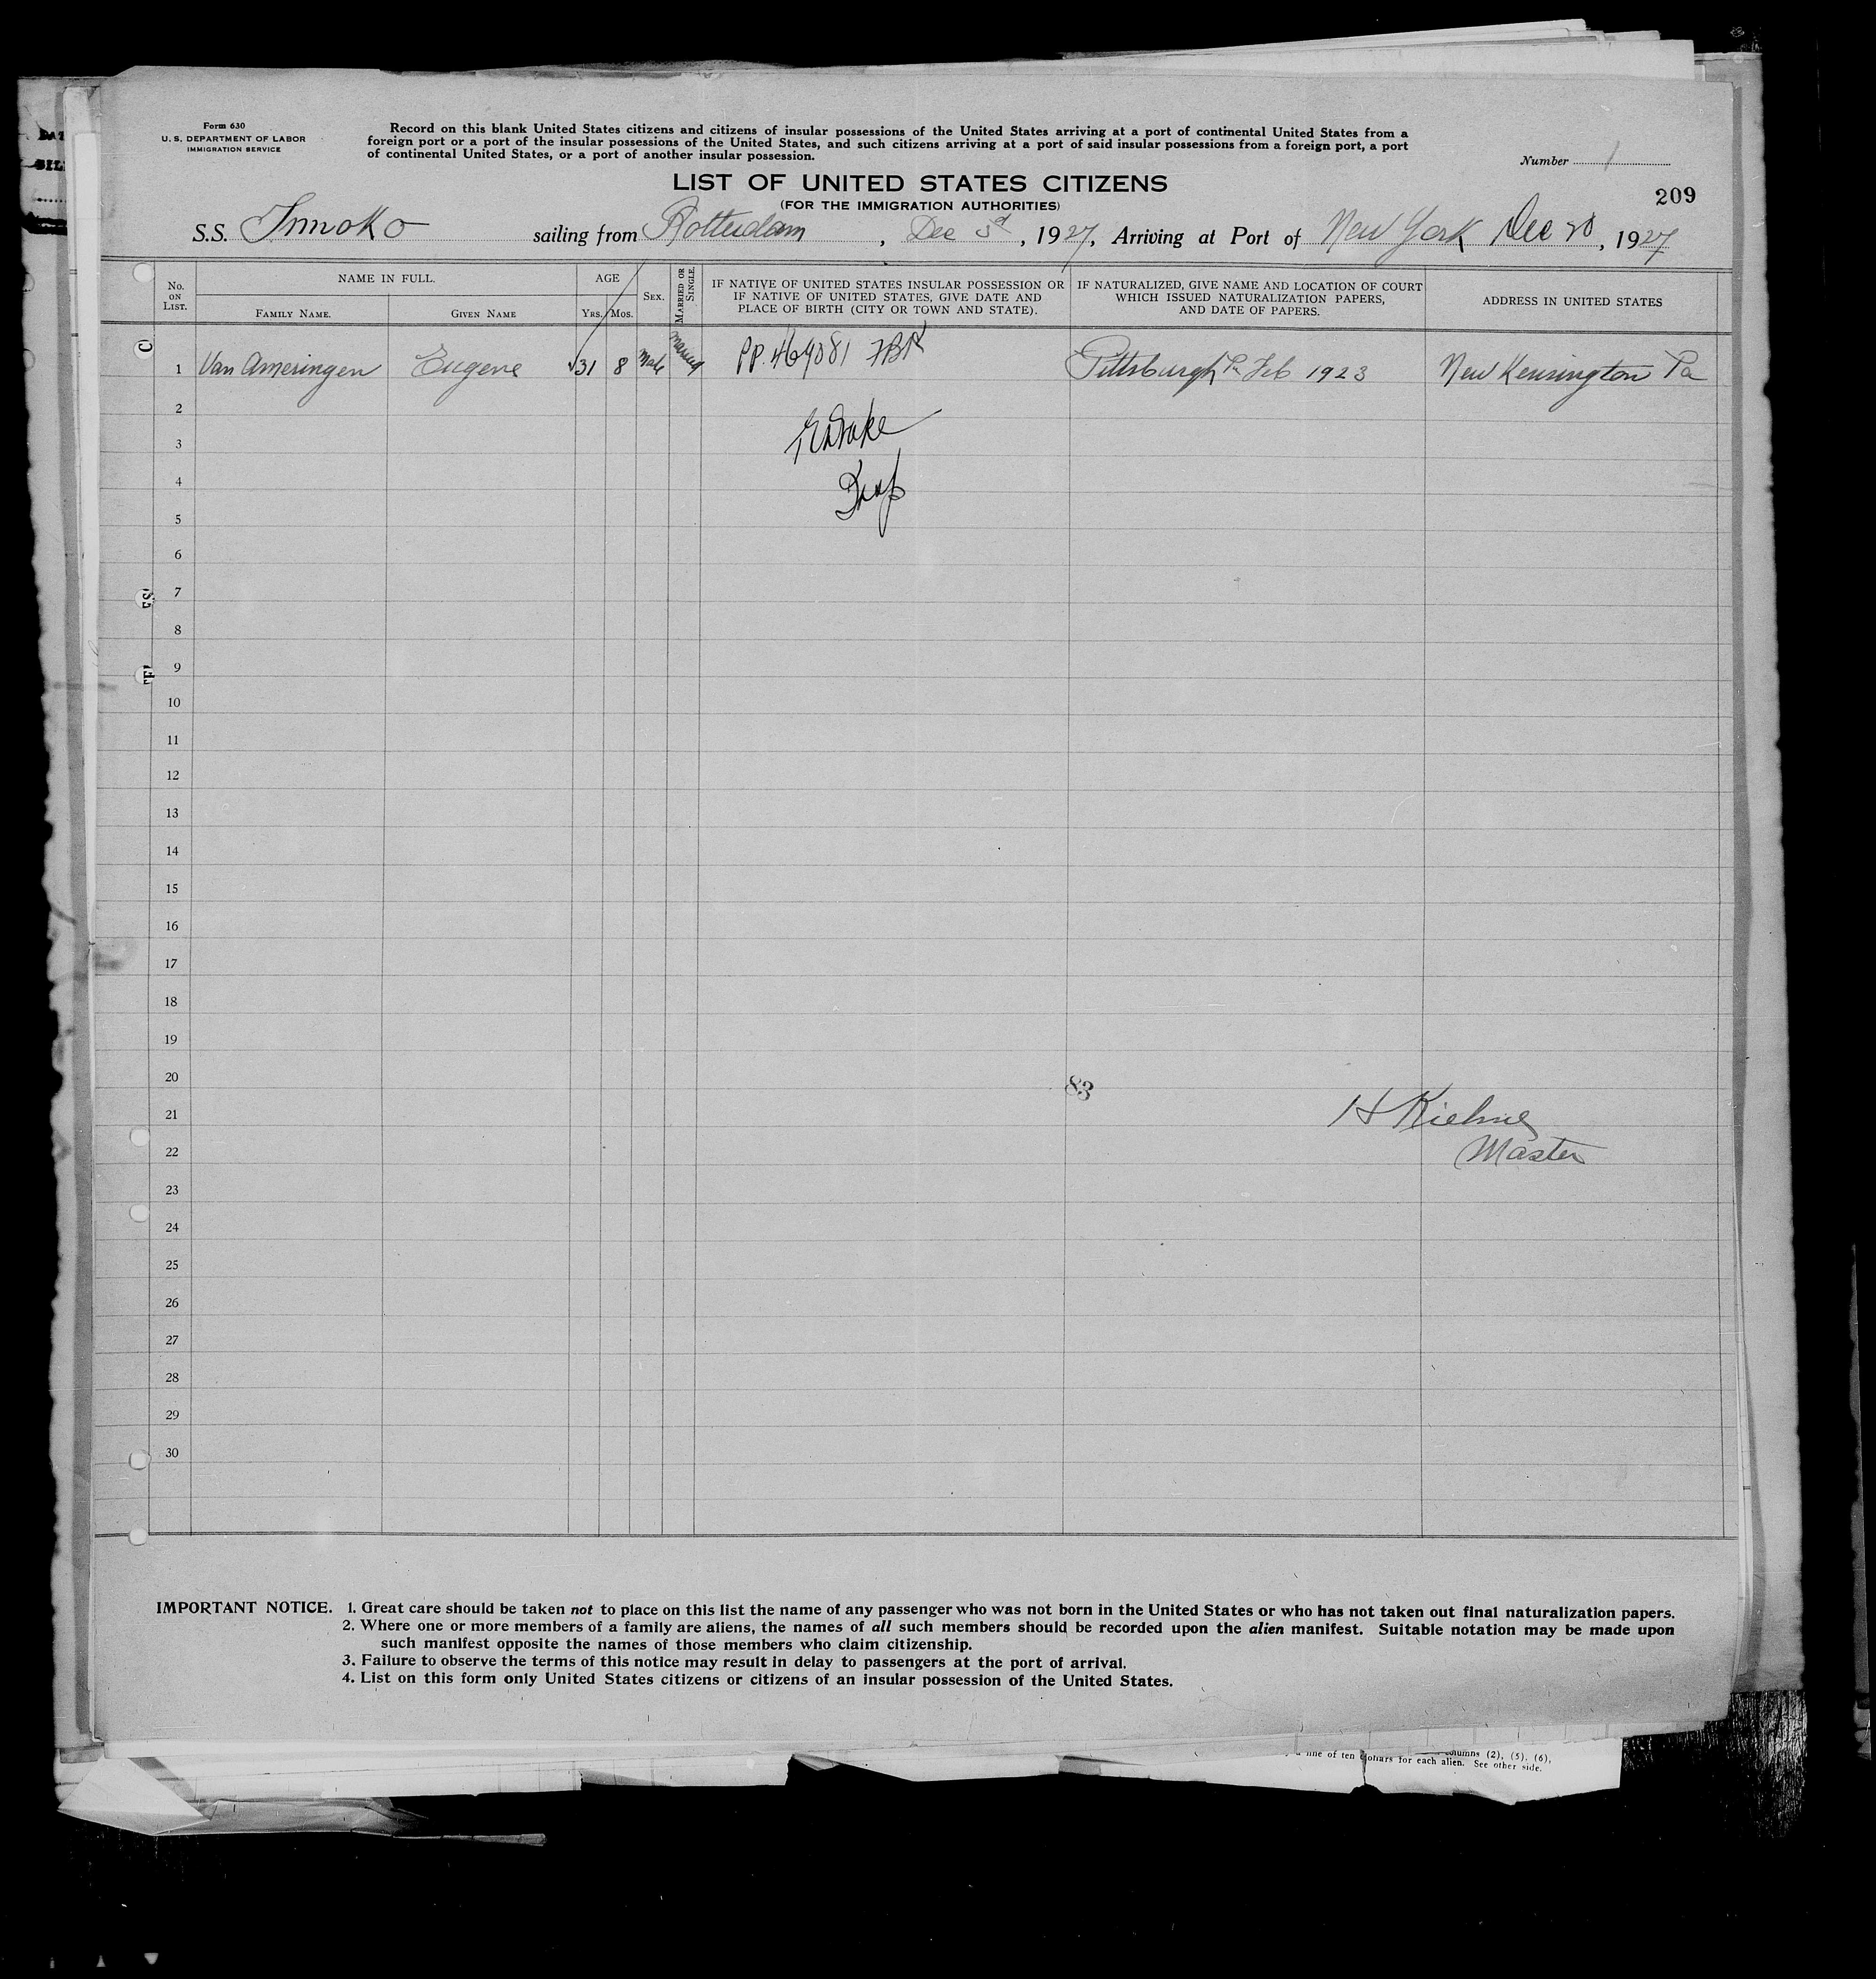 Form 630
U. S. DEPARTMENT OF LABOR
IMMIGRATION SERVICE
Record on this blank United States citizens and citizens of insular possessions of the United States arriving at a port of continental United States from a
foreign port or a port of the insular possessions of the United States, and such citizens arriving at a port of said insular possessions from a foreign port, a port
of continental United States, or a port of another insular possession.
Number 1
LIST OF UNITED STATES CITIZENS
(FOR THE IMMIGRATION AUTHORITIES)
209
S.S. Innoko sailing from Rotterdam, Dec, 1927, Arriving at Port of New York Dec 20, 1927
No. ON LIST.
NAME IN FULL.
FAMILY NAME.
GIVEN NAME
AGE
YRS.
MOS.
SEX.
MARRIED OR SINGLE.
IF NATIVE OF UNITED STATES INSULAR POSSESSION OR
IF NATIVE OF UNITED STATES, GIVE DATE AND
PLACE OF BIRTH (CITY OR TOWN AND STATE).
IF NATURALIZED, GIVE NAME AND LOCATION OF COURT
WHICH ISSUED NATURALIZATION PAPERS,
AND DATE OF PAPERS.
ADDRESS IN UNITED STATES
1 Van Ameringen Eugene 31 8 Male Married PP. 469081 Pittsburgh Pa Feb 1923 New Kensington Pa
2
3
4
5
6
7
8
9
10
11
12
13
14
15
16
17
18
19
20
83
21
H Kiehne
22
Master
23
24
25
26
27
28
29
30
IMPORTANT NOTICE. 1. Great care should be taken not to place on this list the name of any passenger who was not born in the United States or who has not taken out final naturalization papers.
2. Where one or more members of a family are aliens, the names of all such members should be recorded upon the alien manifest. Suitable notation may be made upon
such manifest opposite the names of those members who claim citizenship.
3. Failure to observe the terms of this notice may result in delay to passengers at the port of arrival.
4. List on this form only United States citizens or citizens of an insular possession of the United States.
columns (2), (5), (6),
fine of ten dollars for each alien. See other side.